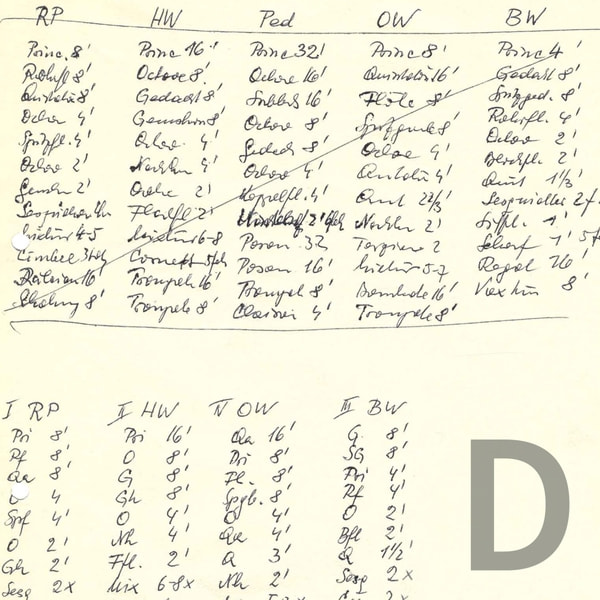 RP HW Ped OW BW
Princ. 8' Princ 16' Princ 32' Princ 8' Princ 4'
Rohrfl 8' Octave 8' Octave 16' Quintatön 16' Gedackt 8'
Quintatön 8' Gedackt 8' Subbass 16' Flöte 8' Spitzged. 8'
Octav 4' Gemshorn 8' Octav 8' 8' Rohrfl. 4'
Spitzfl. 4' Octav 4' Gedack 8' Octave 4' Octav 2'
Octav 2' 4' Octav 4' Quintatön 4' Blockfl. 2'
Gemsh 2' Octav 2' Koppelfl. 4' Quint 2 2/3' Quint 1 1/3'
Flachfl 2' Nachthn 2' Sesquialter 2f.
Mixtur 4-5 Mixtur 6-8 Posaun 32 2 Siffl. 1'
Cimbel 3fach Cornett 5fch Posaun 16' Mixtur 5-7 Scharf 1'
16' Trompete 16' Trompete 8' 16' Regal 16'
8' Trompete 8' Clairon 4' Trompete 8' Vox hum 8'
I RP II HW IV OW III BW
Pri 8' Pri 16' Qa 16' G 8'
Rf 8' O 8' Pri 8' SG 8'
Qa 8' G 8' Fl. 8' Pri 4'
O 4 Gh 8' Spgb. 8' Rf 4'
Spf 4' O 4' O 4' O 2'
O 2' Nh 4' Qa 4' Bfl 2'
Gh 2' Ffl. 2' Q 3' Q 1 1/2'
Sesq 2x Mix 6-8x Nh 2' Sesq 2x
D